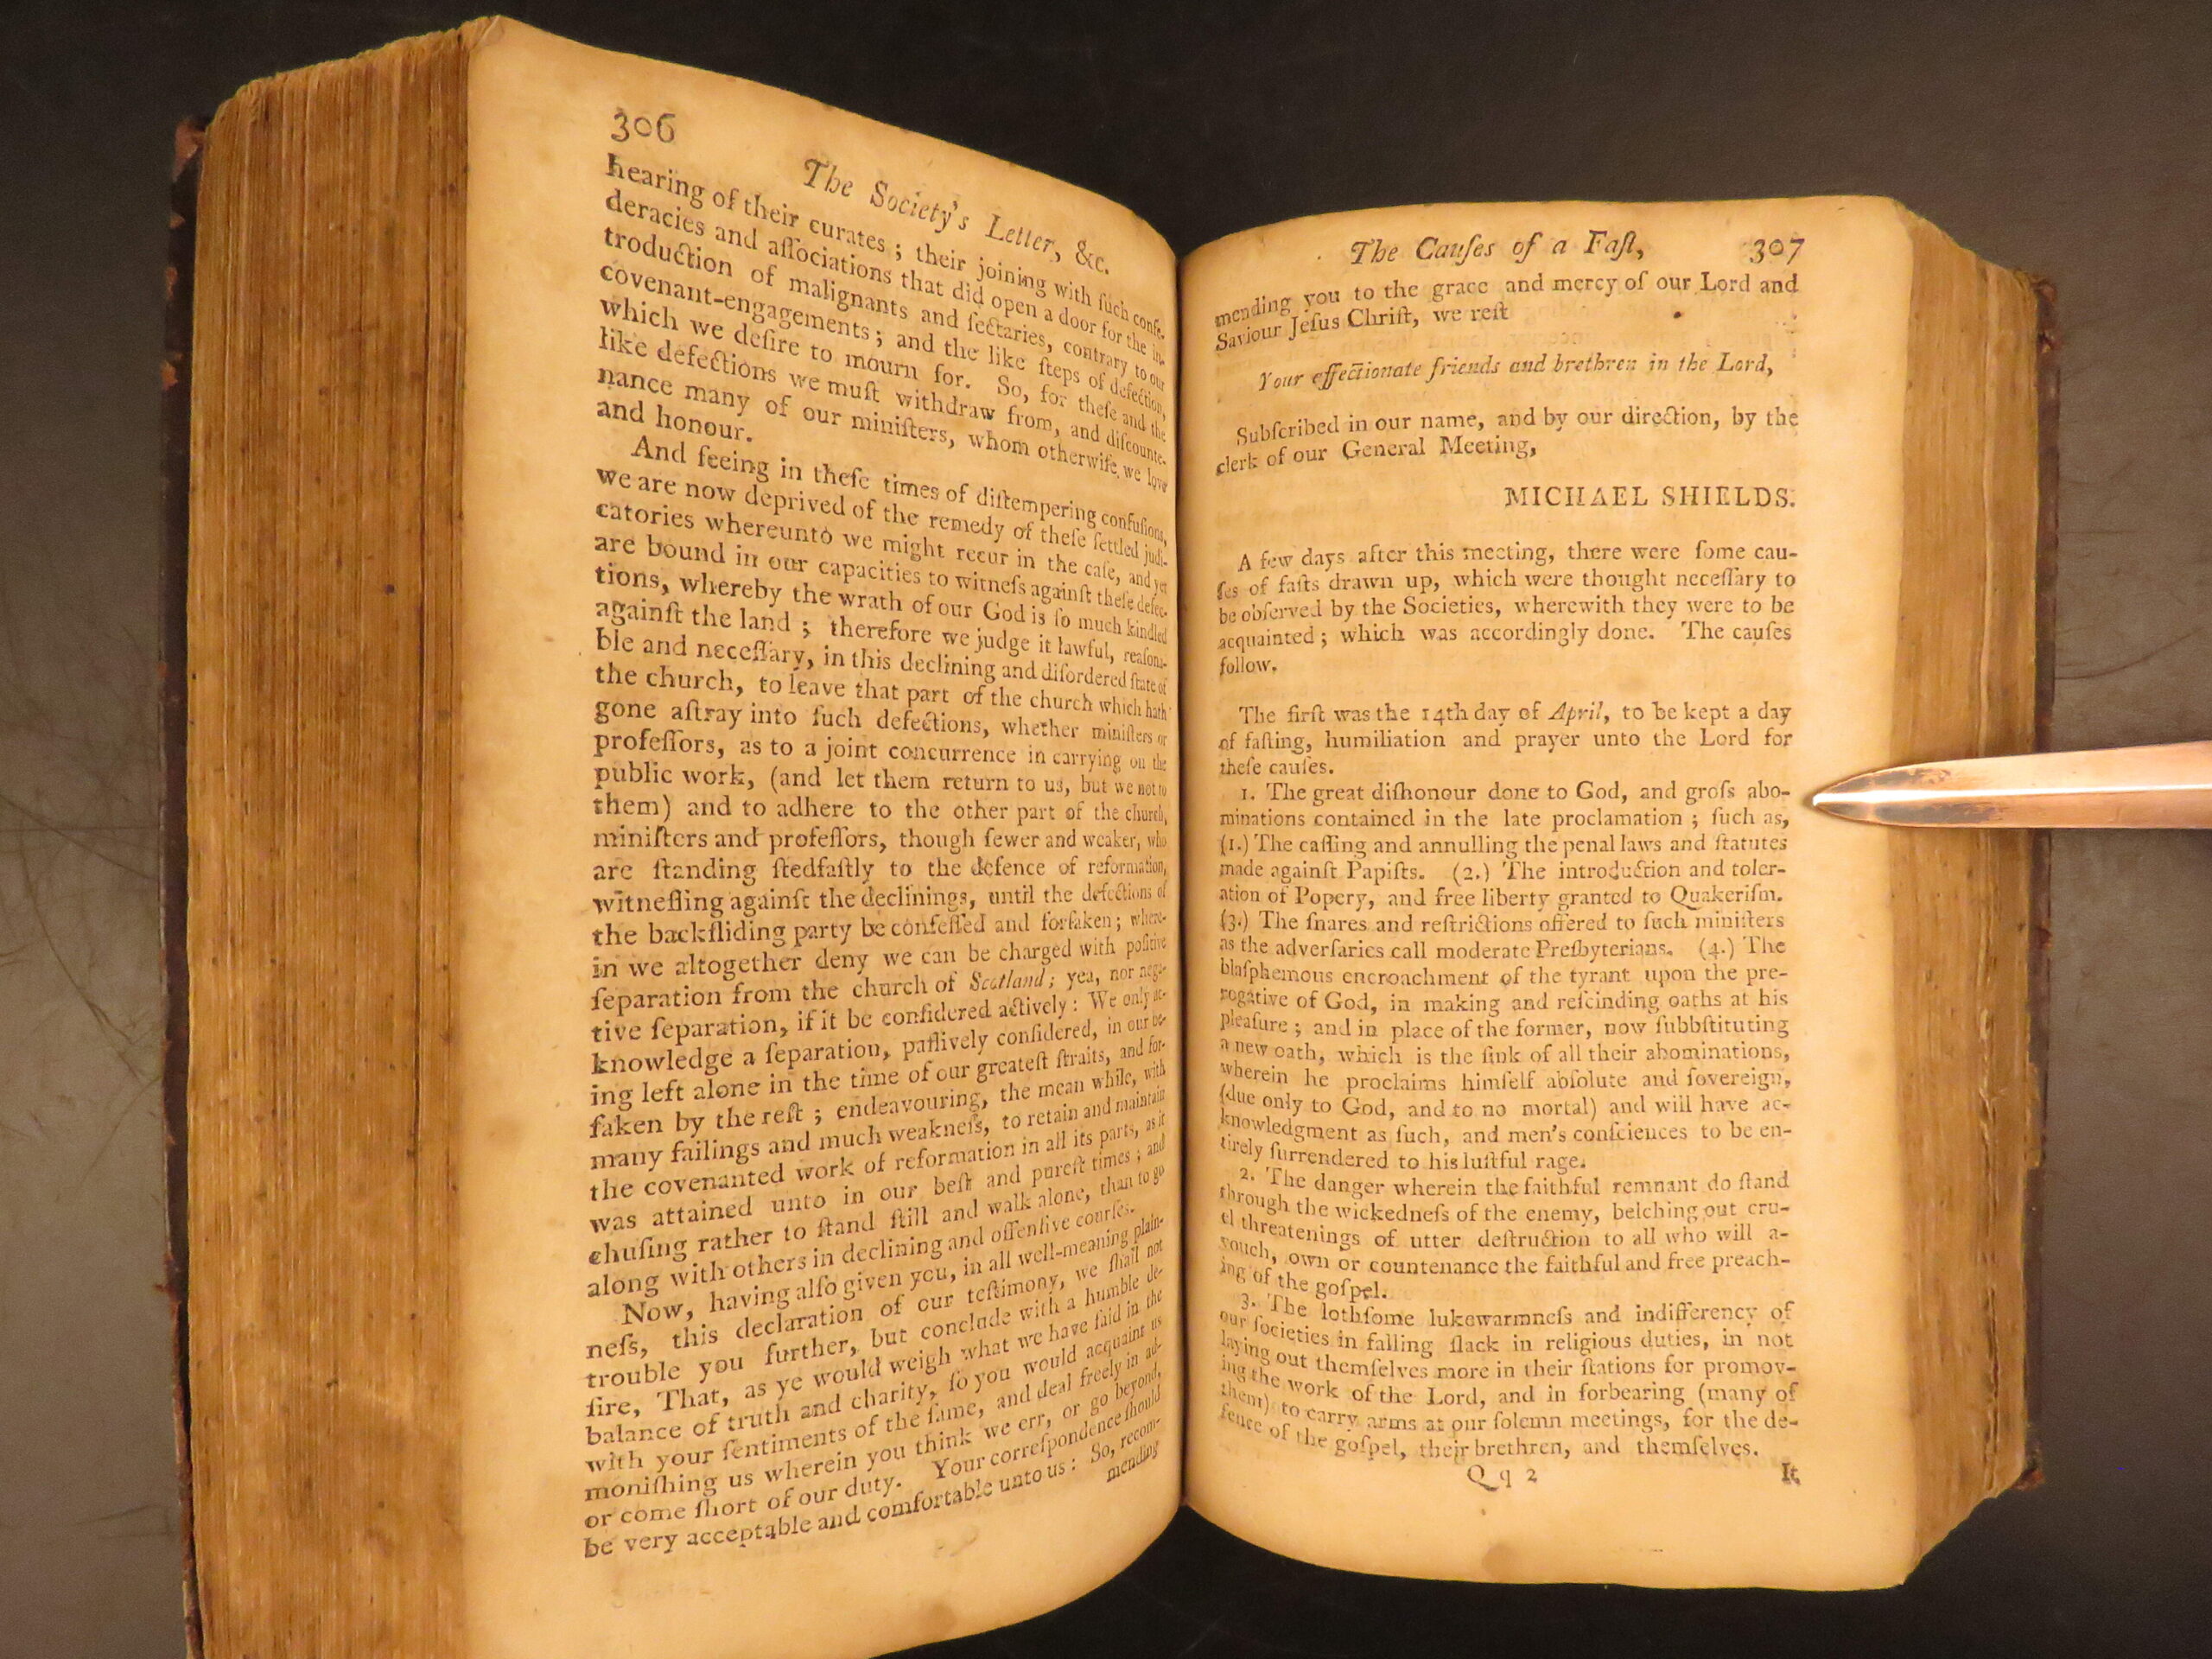 306
The Society's Letter, &c.
hearing of their curates ; their joining with ſuch confe-
deracies and aſſociations that did open a door for the in-
troduction of malignants and ſectaries, contrary to our
covenant-engagements ; and the like ſteps of defection,
which we deſire to mourn for. So, for theſe and the
like defections we muſt withdraw from, and diſcounte-
nance many of our miniſters, whom otherwiſe we love
and honour.
And ſeeing in theſe times of diſtempering confuſions,
we are now deprived of the remedy of theſe ſettled judi-
catories whereunto we might recur in the caſe, and yet
are bound in our capacities to witneſs againſt theſe defec-
tions, whereby the wrath of our God is ſo much kindled
againſt the land ; therefore we judge it lawful, reaſona-
ble and neceſſary, in this declining and diſordered ſtate of
the church, to leave that part of the church which hath
gone aſtray into ſuch defections, whether miniſters or
profeſſors, as to a joint concurrence in carrying on the
public work, (and let them return to us, but we not to
them) and to adhere to the other part of the church,
miniſters and profeſſors, though fewer and weaker, who
are ſtanding ſtedfaſtly to the defence of reformation,
witneſſing againſt the declinings, until the defections of
the backſliding party be confeſſed and forſaken ; where-
in we altogether deny we can be charged with poſitive
ſeparation from the church of Scotland ; yea, nor nega-
tive ſeparation, if it be conſidered actively : We only ac-
knowledge a ſeparation, paſſively conſidered, in our be-
ing left alone in the time of our greateſt ſtraits, and for-
ſaken by the reſt ; endeavouring, the mean while, with
many failings and much weakneſs, to retain and maintain
the covenanted work of reformation in all its parts, as it
was attained unto in our beſt and pureſt times ; and
chuſing rather to ſtand ſtill and walk alone, than to go
along with others in declining and offenſive courſes.
Now, having alſo given you, in all well-meaning plain-
neſs, this declaration of our teſtimony, we ſhall not
trouble you further, but conclude with a humble de-
ſire, That, as ye would weigh what we have ſaid in the
balance of truth and charity, ſo you would acquaint us
with your ſentiments of the ſame, and deal freely in ad-
moniſhing us wherein you think we err, or go beyond,
or come ſhort of our duty. Your correſpondence ſhould
be very acceptable and comfortable unto us : So, recom-
mending
The Cauſes of a Faſt,
307
mending you to the grace and mercy of our Lord and
Saviour Jeſus Chriſt, we reſt
Your affectionate friends and brethren in the Lord,
Subſcribed in our name, and by our direction, by the
clerk of our General Meeting,
MICHAEL SHIELDS.
A few days after this meeting, there were ſome cau-
ſes of faſts drawn up, which were thought neceſſary to
be obſerved by the Societies, wherewith they were to be
acquainted ; which was accordingly done. The cauſes
follow.
The firſt was the 14th day of April, to be kept a day
of faſting, humiliation and prayer unto the Lord for
theſe cauſes.
1. The great diſhonour done to God, and groſs abo-
minations contained in the late proclamation ; ſuch as,
(1.) The caſſing and annulling the penal laws and ſtatutes
made againſt Papiſts. (2.) The introduction and toler-
ation of Popery, and free liberty granted to Quakeriſm.
(3.) The ſnares and reſtrictions offered to ſuch miniſters
as the adverſaries call moderate Preſbyterians. (4.) The
blaſphemous encroachment of the tyrant upon the pre-
rogative of God, in making and reſcinding oaths at his
pleaſure ; and in place of the former, now ſubbſtituting
a new oath, which is the ſink of all their abominations,
wherein he proclaims himſelf abſolute and ſovereign,
(due only to God, and to no mortal) and will have ac-
knowledgment as ſuch, and men's conſciences to be en-
tirely ſurrendered to his luſtful rage.
2. The danger wherein the faithful remnant do ſtand
through the wickedneſs of the enemy, belching out cru-
el threatenings of utter deſtruction to all who will a-
vouch, own or countenance the faithful and free preach-
ing of the goſpel.
3. The lothſome lukewarmneſs and indifferency of
our ſocieties in falling ſlack in religious duties, in not
laying out themſelves more in their ſtations for promov-
ing the work of the Lord, and in forbearing (many of
them) to carry arms at our ſolemn meetings, for the de-
fence of the goſpel, their brethren, and themſelves.
Q q 2
It